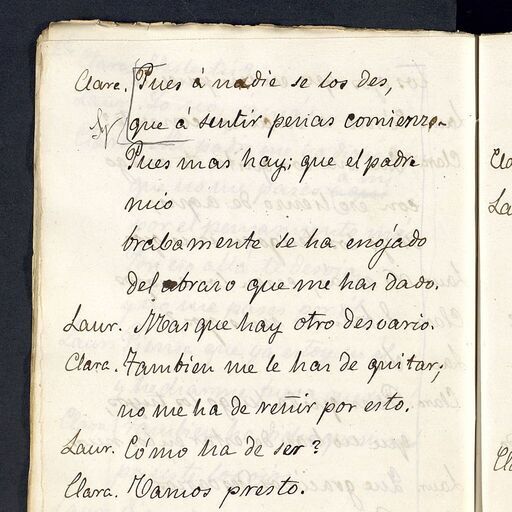 Clara. Pues á nadie se los des,
que á sentir penas comienzo.
Pues mas hay; que el padre
mio
brabamente se ha enojado
del abrazo que me has dado.
Laur. Mas que hay otro desvario.
Clara. Tambien me le has de quitar;
no me ha de reñir por esto.
Laur. Cómo ha de ser?
Clara. Vamos presto.
Cla
La
Cla